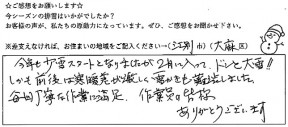 ☆ご感想をお願いします☆
今シーズンの排雪はいかがでしたか?
お客様の声が、私たちの原動力になっています。ぜひ、ご感想をお聞かせ下さい。
※差支えなければ、お住まいの地域をご記入ください→(江別 市)(大麻 区)
今年も少雪スタートとなりましたが2月に入って、ドンと大雪!!
しかも前後は寒暖差が激しく
毎回丁寧な作業に満足、作業員の皆様
ありがとうございます